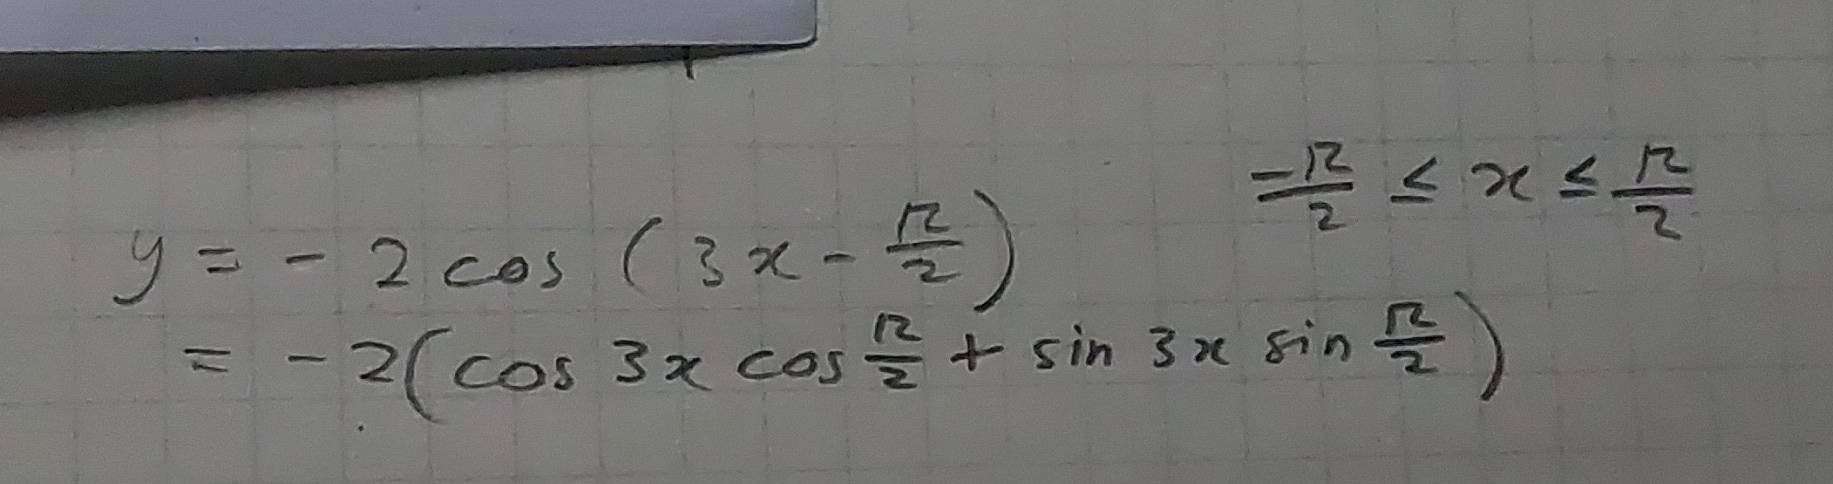 -π/2 ≤ x ≤ π/2
y = - 2 cos (3x - π/2)
= - 2(cos 3x cos π/2 + sin 3x sin π/2)